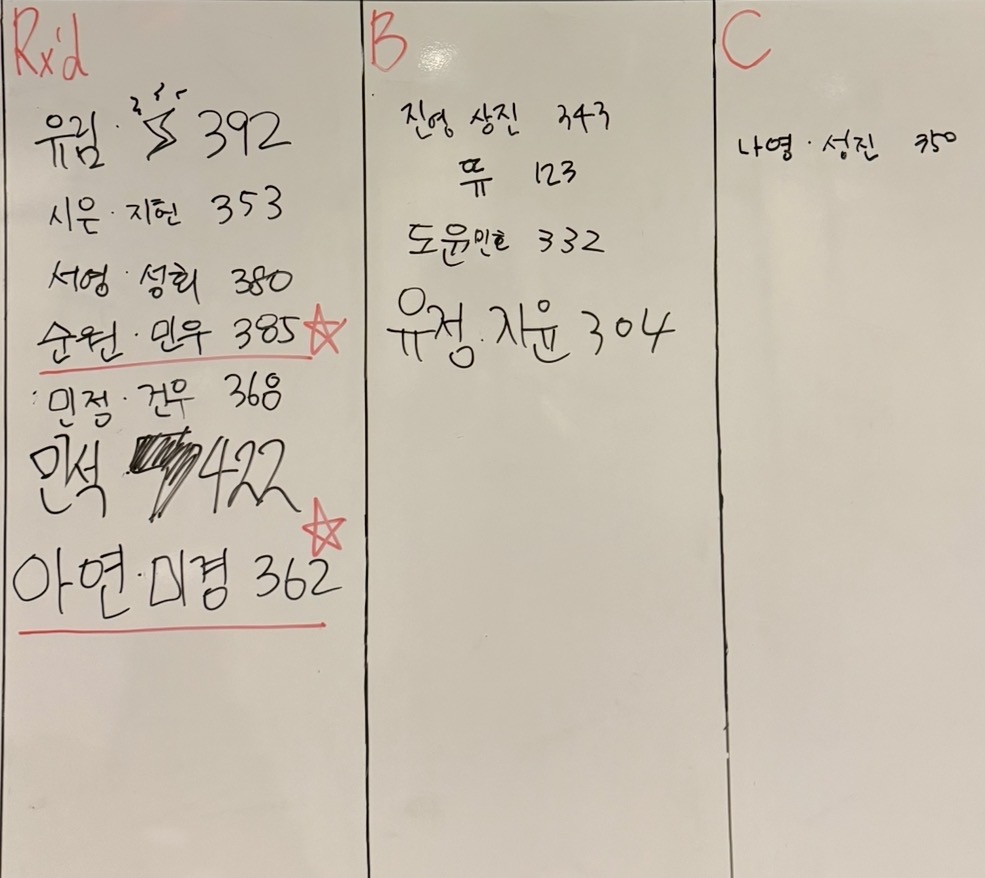 Rx'd
유림 · 392
시은 · 지현 353
서영 · 성희 380
순원 · 민우 385
민정 · 건우 368
민석 · 422
아연 · 미경 362
B
진영 상진 343
뜌 123
도윤 민호 332
유정 · 지윤 304
C
나영 · 성진 350